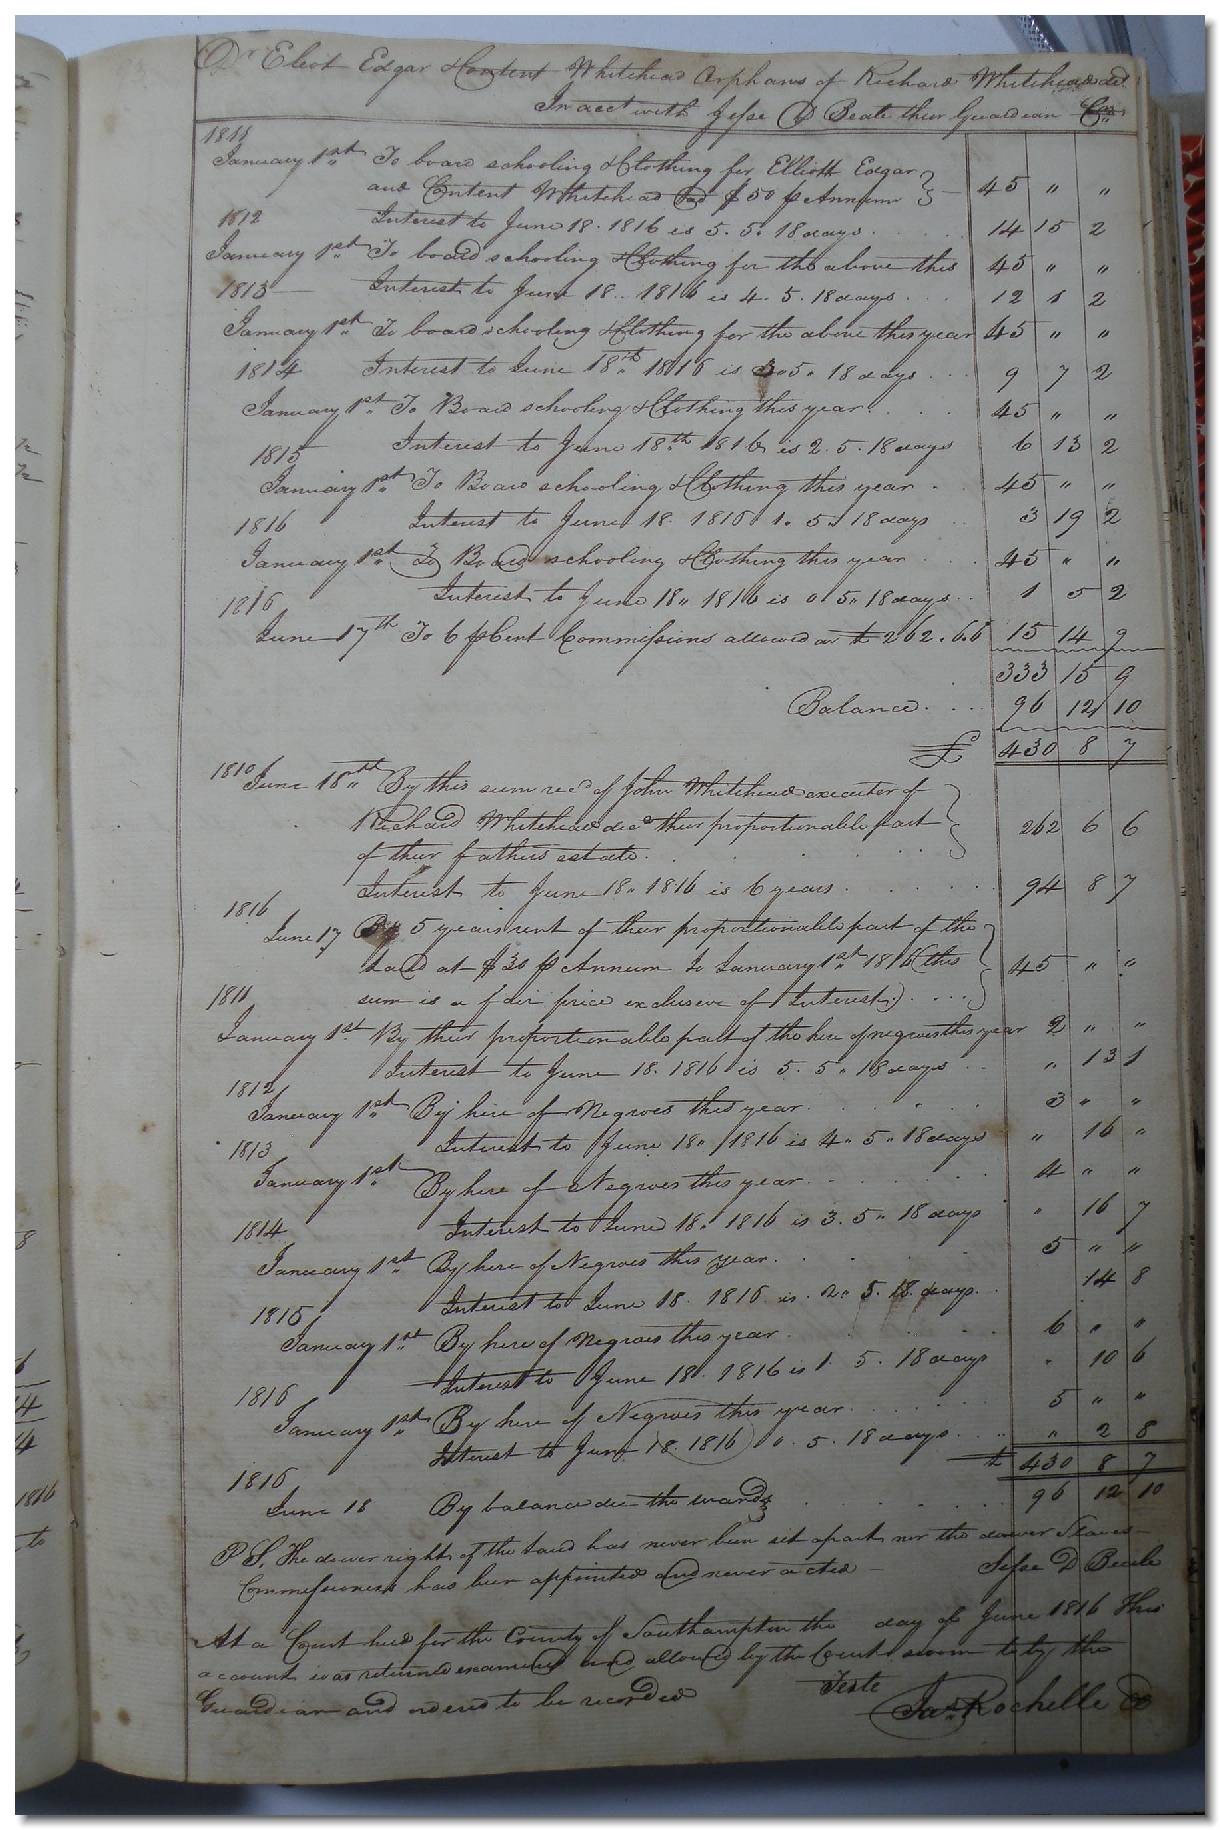 Dr Eliot Edgar & Content Whitehead Orphans of Richard Whitehead decd
In acct with Jesse D Beale their Guardian Cr
1811
January 1st To board schooling & Clothing for Elliott Edgar
and Content Whitehead at $50 p Annum 45 " "
1812 Interest to June 18. 1816 is 5. 5. 18 days 14 15 2
January 1st To board schooling & Clothing for the above this 45 " "
1813 Interest to June 18. 1816 is 4. 5. 18 days 12 1 2
January 1st To board schooling & Clothing for the above this year 45 " "
1814 Interest to June 18th 1816 is 3. 5. 18 days 9 7 2
January 1st To Board schooling & Clothing this year 45 " "
1815 Interest to June 18th 1816 is 2. 5. 18 days 6 13 2
January 1st To Board schooling & Clothing this year 45 " "
1816 Interest to June 18. 1816 1. 5. 18 days 3 19 2
January 1st To Board schooling & Clothing this year 45 " "
1816 Interest to June 18" 1816 is 0 5" 18 days 1 5 2
June 17th To 6 p Cent Commissions allowed on £ 262. 6.6 15 14 9
333 15 9
Balance 96 12 10
£ 430 8 7
1810 June 18th By this sum recd of John Whitehead executor of
Richard Whitehead decd their proportionable part 262 6 6
of their fathers estate
Interest to June 18" 1816 is 6 years 94 8 7
1816
June 17 By 5 years rent of their proportionable part of the
land at $30 p Annum To January 1st 1816 (this 45 " "
1811 sum is a fair price exclusive of Interest)
January 1st By their proportionable part of the hire of negroes this year 2 " "
Interest to June 18. 1816 is 5. 5" 18 days " 13 1
1812
January 1st By hire of Negroes this year 3 " "
1813 Interest to June 18" 1816 is 4" 5" 18 days " 16 "
January 1st By hire of Negroes this year 4 " "
1814 Interest to June 18. 1816 is 3. 5" 18 days " 16 7
January 1st By hire of Negroes this year 5 " "
1815 Interest to June 18. 1816 is 2" 5. 18 days 14 8
January 1st By hire of Negroes this year 6 " "
1816 Interest to June 18. 1816 is 1. 5. 18 days " 10 6
January 1st By hire of Negroes this year 5 " "
Interest to June 18. 1816 0. 5. 18 days " 2 8
1816 £ 430 8 7
June 18 By balance due the wards 96 12 10
P S. The dower right of the land has never been set apart nor the dower Slaves
Commissioners has been appointed and never acted Jesse D Beale
At a Court held for the County of Southampton the day of June 1816 This
account was returned examined and allowed by the Court sworn to by the
Guardian and ordered to be recorded Teste
Jas Rochelle